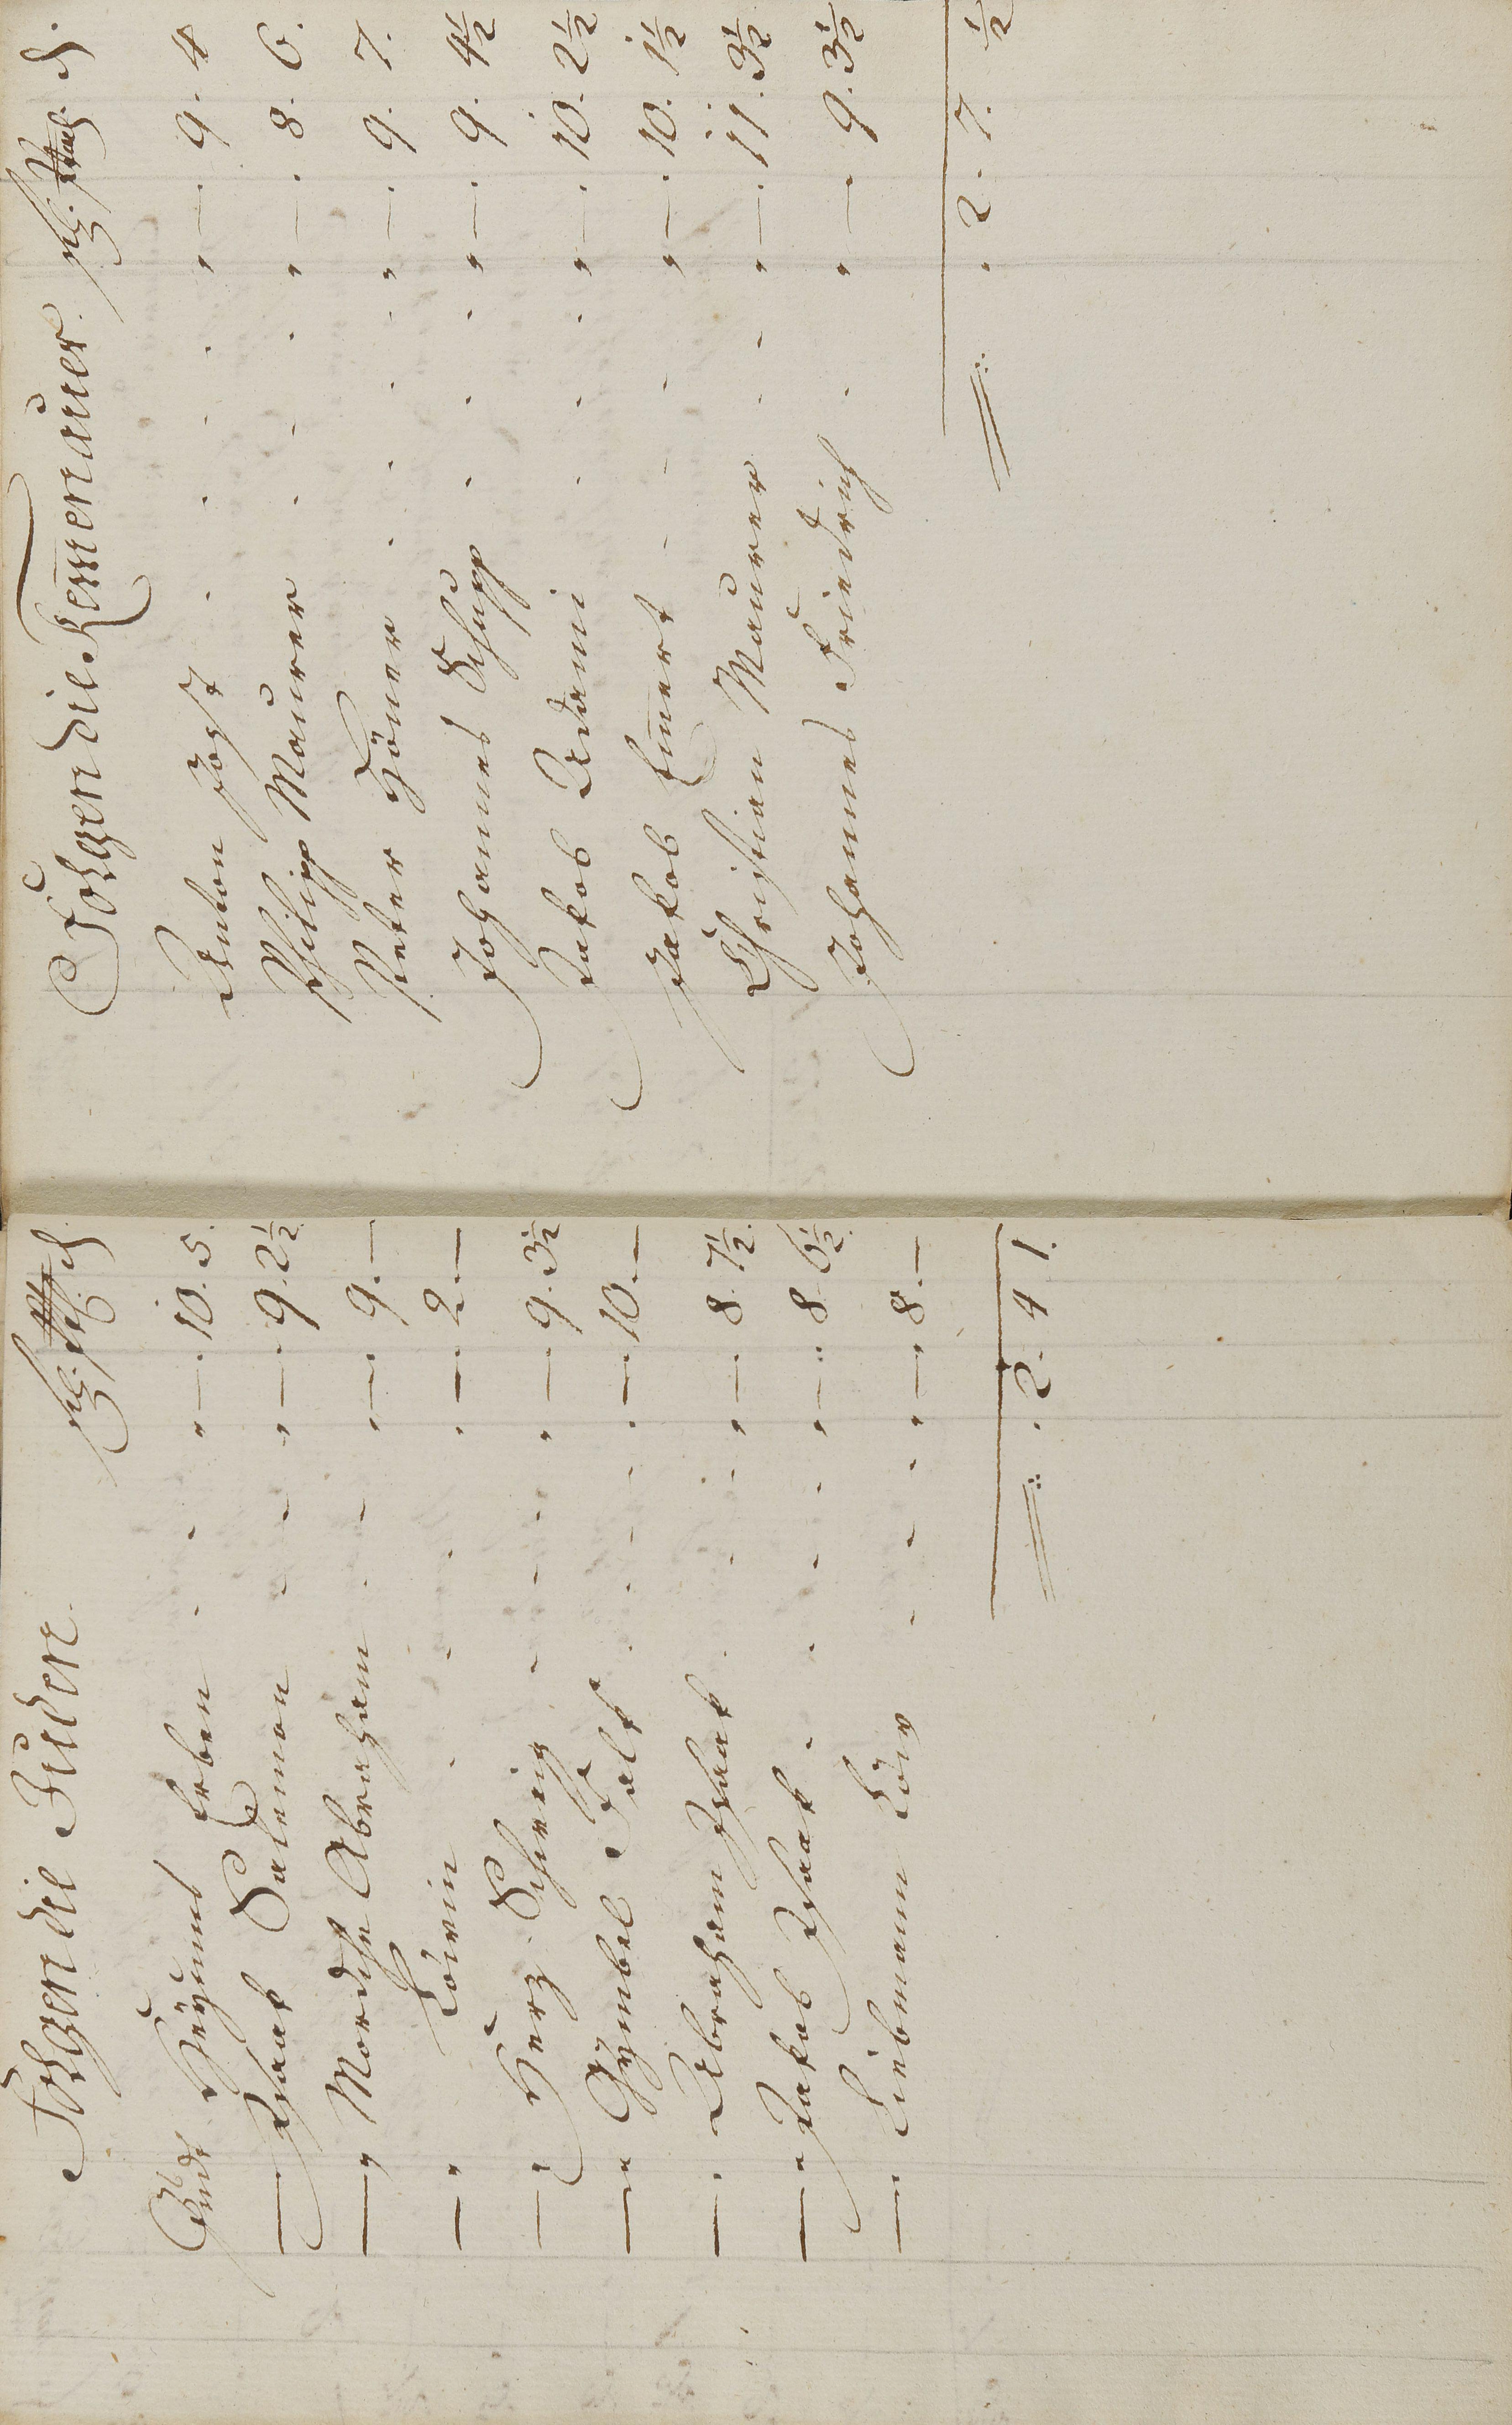 Folgen die Juden. fl. d.
Jud Heÿums Erben . . „ — . 10. 5.
— „ Isaak Salomon . . „ — . 9. 2½.
— „ Mordche Abraham . . „ — . 9. —
— „ Löwin . . . „ — . 2. —
— „ Herz Scheüig . . . „ — . 9. 3½
— „ Gÿmbel Falk . . . „ — . 10. —
— „ Abraham Isaak . . . „ — . 8. 7½.
— „ Jakob Isaak . . . . „ — . 8. 6½.
— „ Liebmann Löw . . . „ — . 8. —
. 2. 4 1.
Folgen die Kemenauer. fl. d.
Anton Jost . . . . „ — . 9. 4
Philipp Maurer . . . „ — . 8. 6.
Peter Höner . . . . „ — . 9. 7.
Johannes Schupp . . . „ — . 9. 4½
Jakob Adami . . . „ — . 10. 2½
Jakob Em̅ert . . . „ — . 10. 1½
Christian Maurer . . „ — . 11. 3½
Johannes Friedrich . „ — 9. 3½
. 2. 7. ½